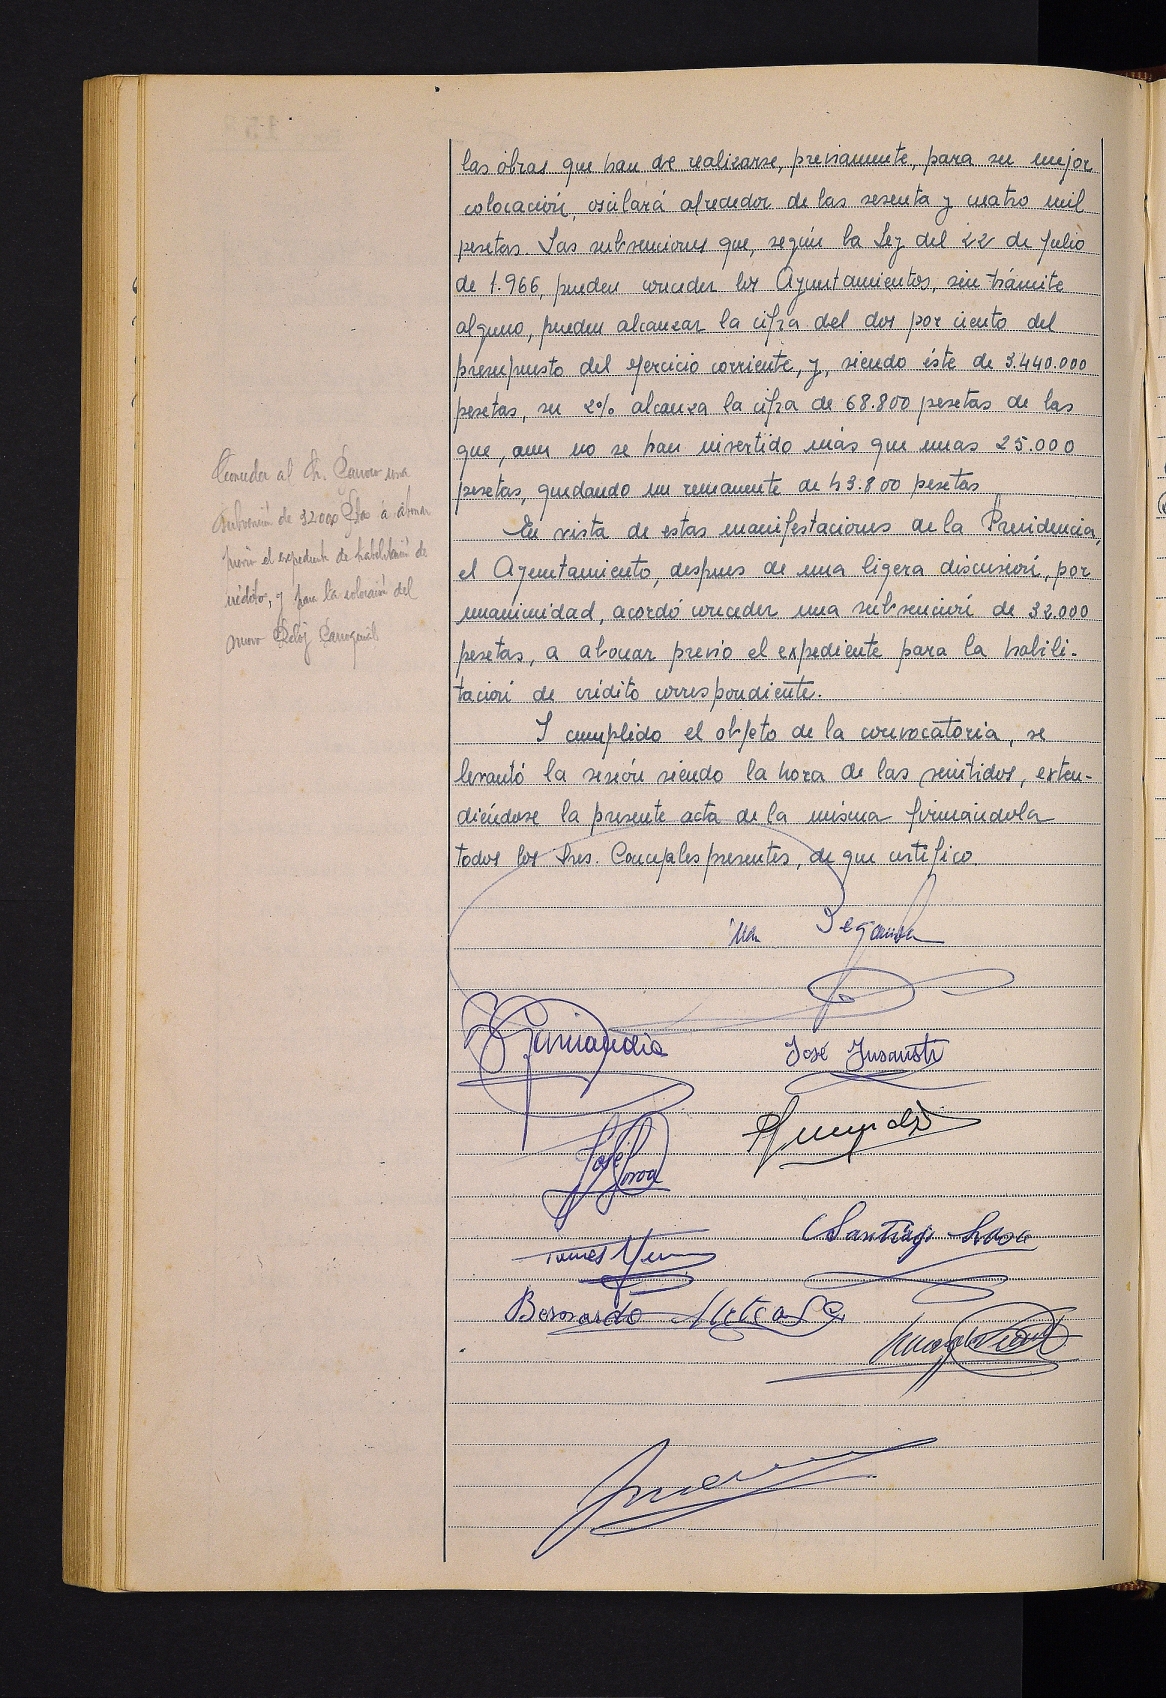 las obras que han de realizarse, previamente, para su mejor
colocación, oscilará alrededor de las sesenta y cuatro mil
pesetas. Las subvenciones que, según la Ley del 22 de Julio
de 1.966, pueden conceder los Ayuntamientos, sin trámite
alguno, pueden alcanzar la cifra del dos por ciento del
presupuesto del ejercicio corriente, y, siendo éste de 3.440.000
pesetas, su 2% alcanza la cifra de 68.800 pesetas de las
que, aun no se han invertido más que unas 25.000
pesetas, quedando un remanente de 43.800 pesetas
En vista de estas manifestaciones de la Presidencia,
el Ayuntamiento, despues de una ligera discusión, por
unanimidad, acordó conceder una subvención de 32.000
pesetas, a abonar previo el expediente para la habili-
tación de crédito correspondiente.
Y cumplido el objeto de la convocatoria, se
levantó la sesión siendo la hora de las veintidos, exten-
diéndose la presente acta de la misma firmándola
todos los Sres. Concejales presentes, de que certifico.
Conceder al Sr. Párroco una
subvención de 32.000 Pts a abonar
previo el expediente de habilitación de
crédito, y para la colocación del
nuevo Reloj Parroquial
José Insausti
José
Tomás
Santiago
Bernardo